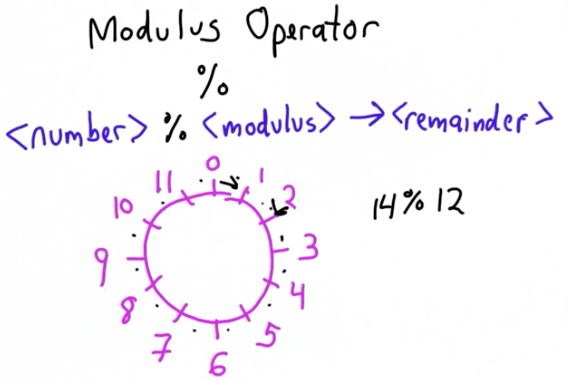 Modulus Operator
%
<number> % <modulus> → <remainder>
0
1
2
3
4
5
6
7
8
9
10
11
14 % 12